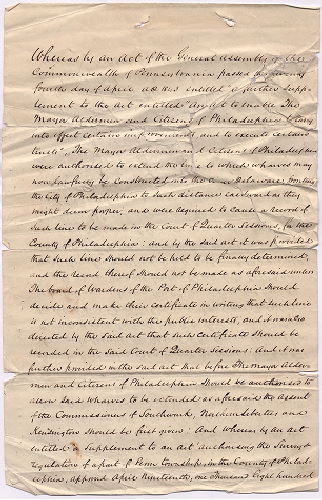 Whereas by an Act of the General Assembly of the
Commonwealth of Pennsylvania passed the twenty
fourth day of April entitled "a further Supp-
lement to the act entitled "An Act to enable The
Mayor Aldermen and Citizens of Philadelphia to carry
into effect certain improvements, and to execute certain
trusts", The Mayor Aldermen and Citizens of Philadelphia
were authorised to extend the line to which wharves may
now lawfully be constructed into the river Delaware from
the City of Philadelphia to such distance eastward as they
might deem proper, and were required to cause a record of
such line to be made in the Court of Quarter Sessions, for the
County of Philadelphia: and by the said act it was provided
that such line should not be held to be finally determined,
and the record thereof should not be made as aforesaid unless
The board of Wardens of the Port of Philadelphia should
decide and make their certificate in writing that such line
is not inconsistent with the public interests, and it was also
directed by the said Act that such certificate should be
recorded in the said Court of Quarter Sessions. And it was
further provided in the said act that before The Mayor Alder-
men and Citizens of Philadelphia should be authorised to
allow said wharves to be extended as aforesaid the assent
of the Commissioners of Southwark, Northern Liberties, and
Kensington should be first given: And whereas by an act
entitled "A Supplement to an act authorising the Survey &
regulation of a part of Penn Township, in the County of Philad-
elphia, approved April Nineteenth, one thousand Eight hundred